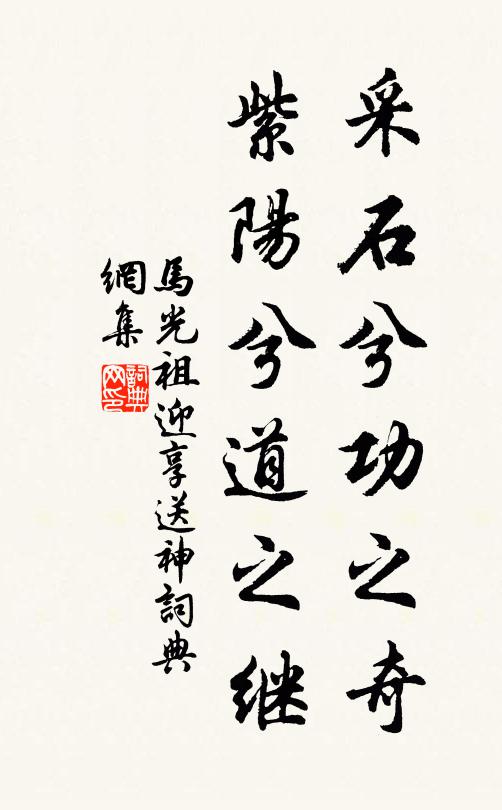 采石兮功之奇
紫陽兮道之继
馬光祖迎享送神詞典
網集
詞典网印